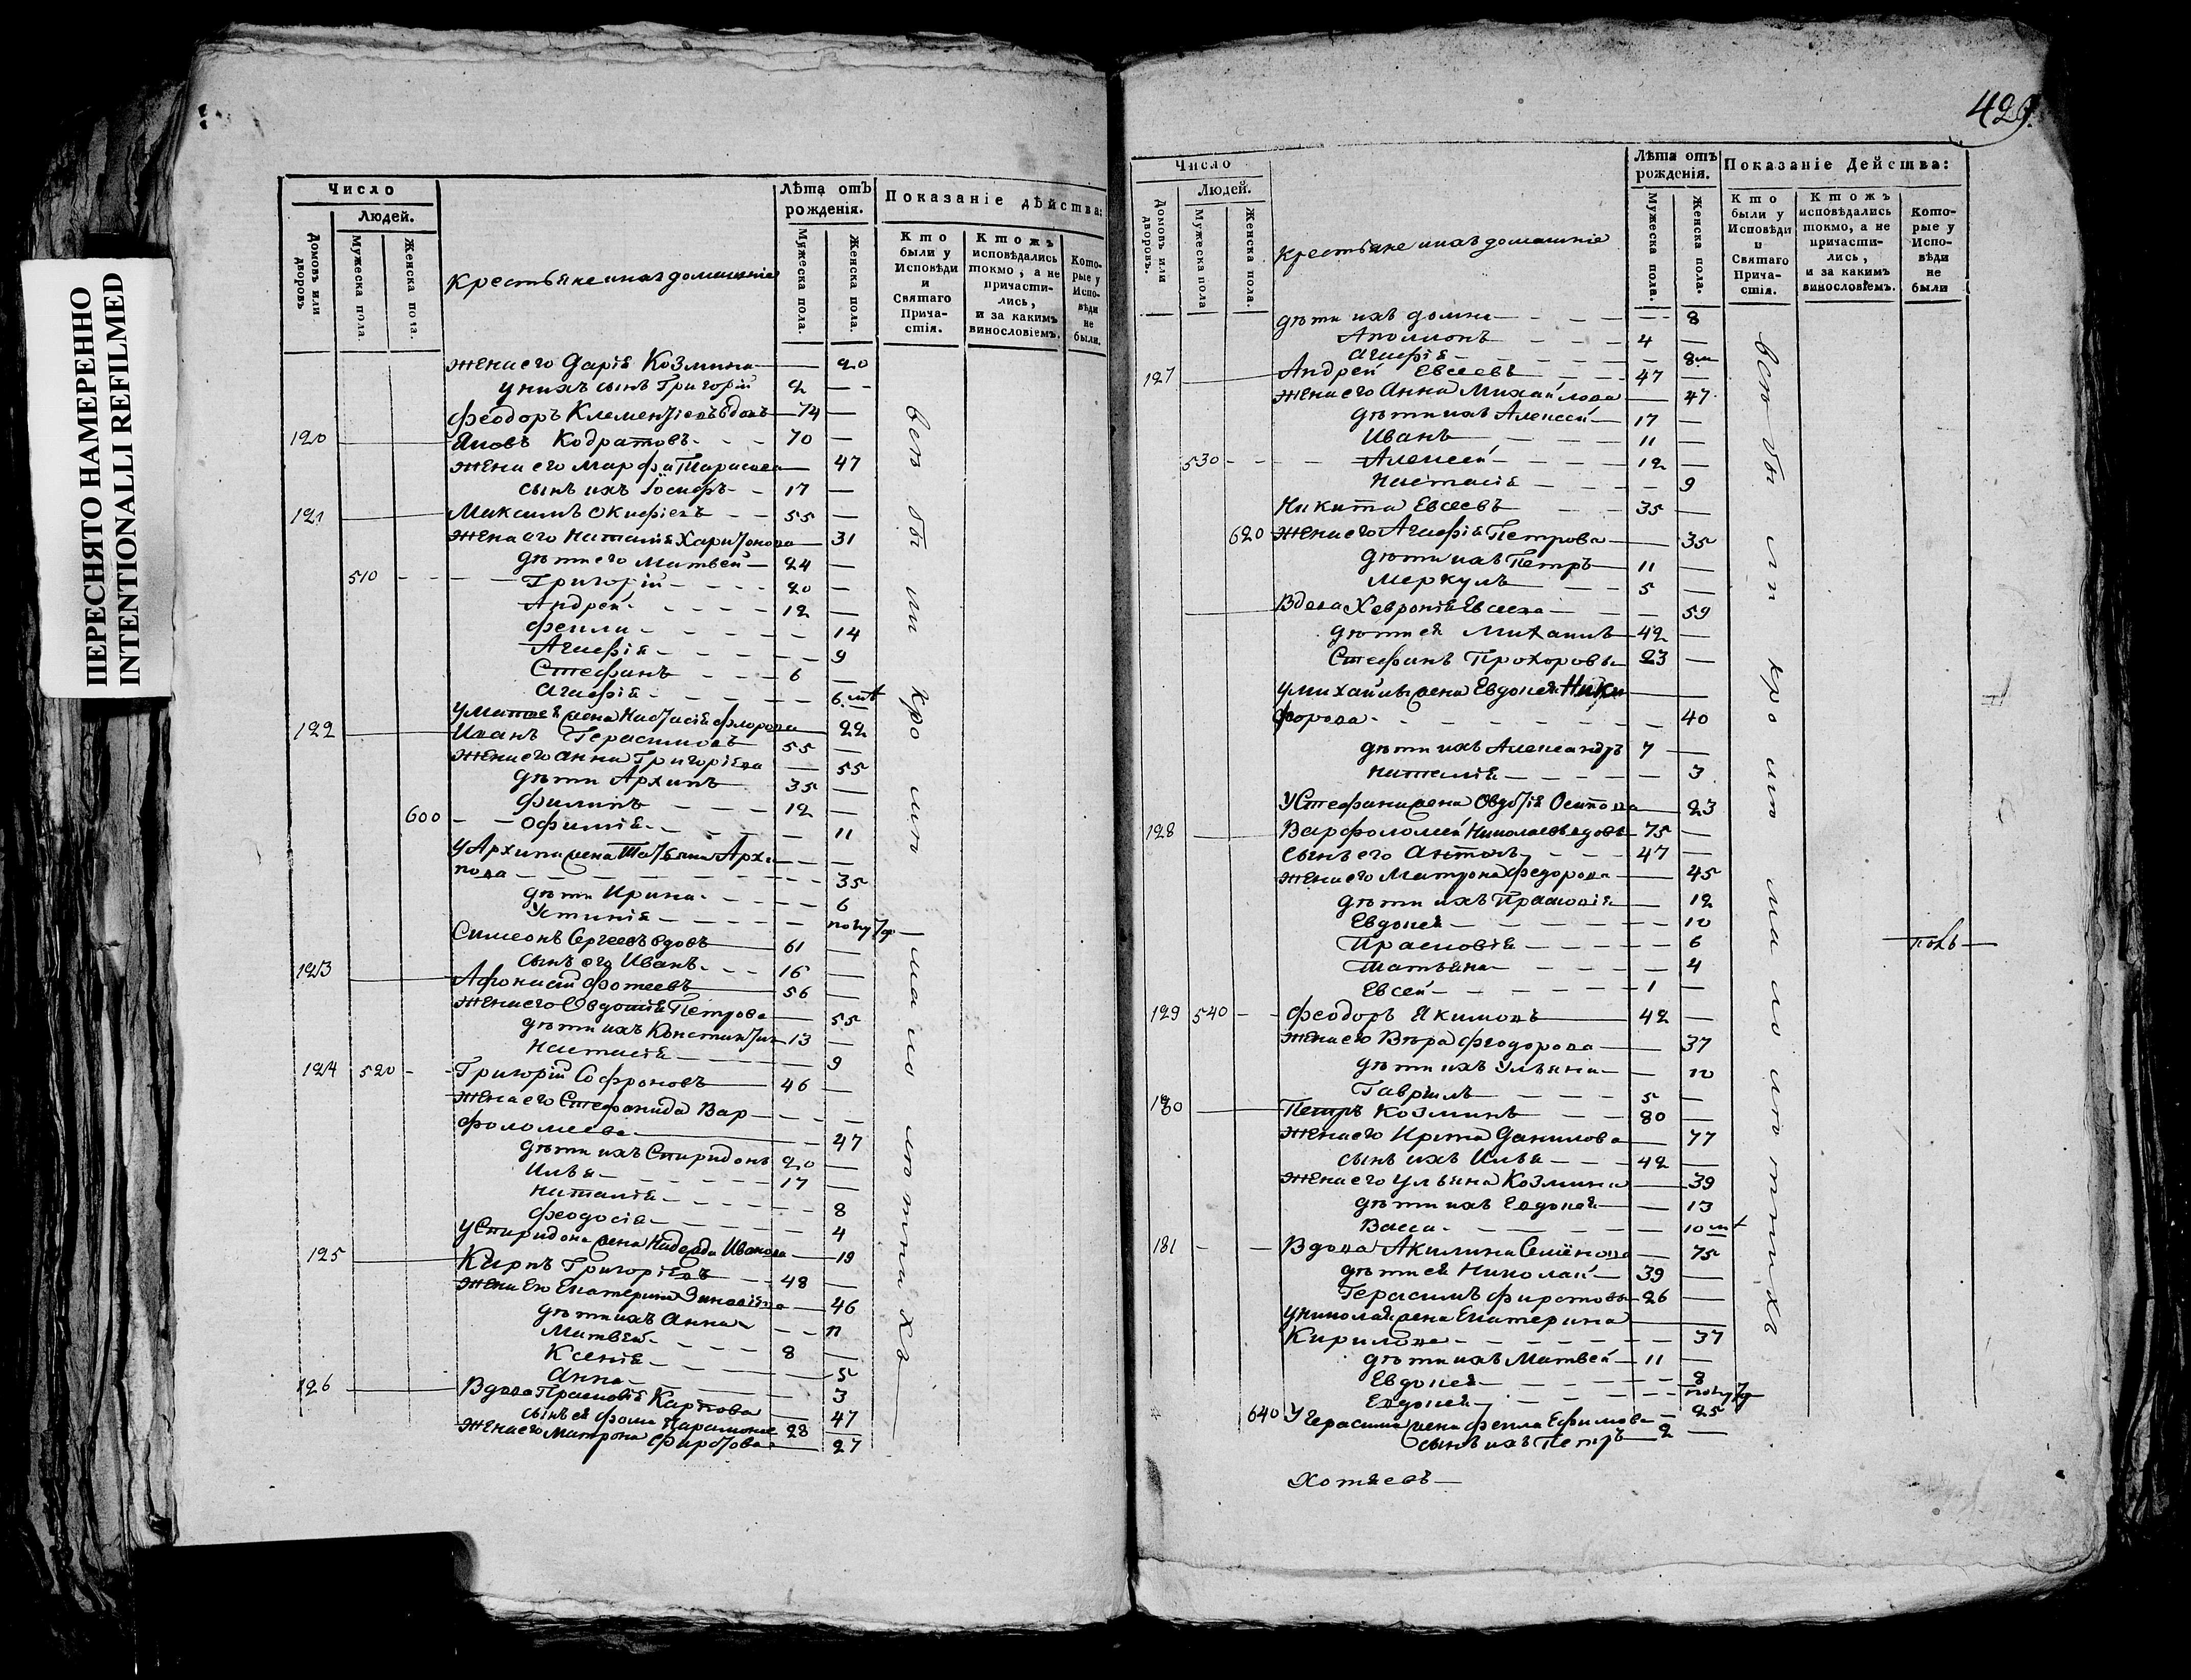 ПЕРЕСНЯТО НАМЕРЕННО
INTENTIONALLI REFILMED
Число
Людей.
Домовъ или дворовъ
Мужеска пола.
Женска пола.
Крестьяне и ихъ домашніе
Лѣта отъ рожденія.
Мужеска пола.
Женска пола.
Показаніе дѣйства:
Кто были у Исповѣди и Святаго Прича- стія.
Ктожъ исповѣдались токмо, а не причасти- лись, и за какимъ винословіемъ.
Кото- рые у Испо- вѣди не были.
жена его Дарія Козмина — 20
у нихъ сынъ Григорій 2 —
Феодоръ Клементіевъ вдовъ 74 —
120 Яковъ Кодратовъ 70 —
жена его Марфа Тарасова — 47
сынъ ихъ Іосифъ 17 —
121 Максимъ 55 —
жена его Наталія Харитонова — 31
дѣти его Матвей 24 —
510 Григорій 20 —
Андрей 12 —
Фекла — 14
Агафія — 9
Стефанъ 6 —
Агафія — 6 м
у Матвея жена Настасія Флорова — 22
122 Иванъ Герасимовъ 55 —
жена его Анна Григоріева — 55
дѣти Архипъ 35 —
Филипъ 12 —
600 Офимія — 11
у Архипа жена Татьяна Архи
пова — 35
дѣти Ирина — 6
Устинія — полутр
Симеонъ Сергеевъ вдовъ 61 —
сынъ его Иванъ 16 —
123 Афонасій Фотеевъ 56 —
жена его Овдотія Петрова — 55
дѣти ихъ Константинъ 13 —
Настасія — 9
124 520 Григорій Софроновъ 46 —
жена его Стефанида Вар
фоломеева — 47
дѣти ихъ Спиридонъ 20 —
Илья 17 —
Наталія — 8
Феодосія — 4
у Спиридона жена Надежда Иванова — 19
125 Карпъ Григоріевъ 48 —
жена его Екатерина Зиновіева — 46
дѣти ихъ Анна — 11
Матвей 8 —
Ксенія — 5
Анна — 3
126 Вдова Прасковія Карпова — 47
сынъ ея Фома Парамонов 28 —
жена его Матрона Фирстова — 27
всѣ были кромѣ малолѣтныхъ
429.
Число
Людей.
Домовъ или дворовъ.
Мужеска пола
Женска пола.
Крестьяне и ихъ домашніе
Лѣта отъ рожденія.
Мужеска пола.
Женска пола.
Показаніе Действа:
Кто были у Исповѣди и Святаго Прича- стія.
Ктожъ исповѣдались токмо, а не причасти- лись, и за какимъ винословіемъ.
Кото- рые у Испо- вѣди не были
дѣти ихъ Домна — 8
Аполлонъ 4 —
Агафія — 8 м
127 Андрей Евсеевъ 47 —
жена его Анна Михайлова — 47
дѣти ихъ Алексей 17 —
Иванъ 11 —
530 Алексей 12 —
Настасія — 9
Никита Евсеевъ 35 —
620 жена его Агафія Петрова — 35
дѣти ихъ Петръ 11 —
Меркулъ 5 —
Вдова Хевронія Евсеева — 59
дѣти ея Михаилъ 42 —
Стефанъ Прохоровы 23 —
у Михайлы жена Евдокея Ники
форова — 40
дѣти ихъ Александръ 7 —
Наталія — 3
у Стефана жена Овдотія Осипова — 23
128 Варфоломей Николаевъ вдовъ 75 —
сынъ его Антонъ 47 —
жена его Матрона Федорова — 45
дѣти ихъ Прасковія — 12
Евдокея — 10
Прасковія — 6
Татьяна — 4
Евсей 1 —
129 540 Феодоръ Якимовъ 42 —
жена его Вѣра Феодорова — 37
дѣти ихъ Ульяна — 10
Гавріилъ 5 —
130 Петръ Козминъ 80 —
жена его Данилова — 77
сынъ ихъ Илья 42 —
жена его Ульяна Козмина — 39
дѣти ихъ Евдокея — 13
Васса — 10 м
131 Вдова Акилина Семёнова — 75
дѣти ея Николай 39 —
Герасимъ Фирстовы 26 —
у Николая жена Екатерина
Кирилова — 37
дѣти ихъ Матвей 11 —
Евдокея — 8
Евдокея — полутр
640 у Герасима жена Фекла Ефимова — 25
сынъ ихъ Петръ 2 —
Хотяевъ
всѣ были кромѣ малолѣтныхъ